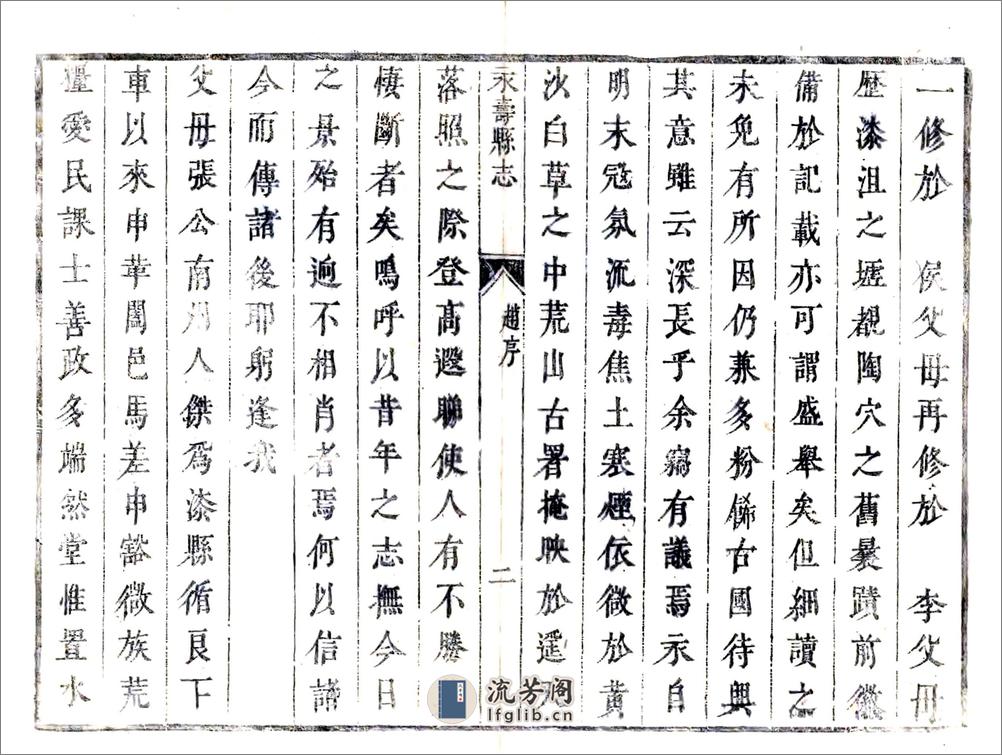 一修於　侯父母再修於　李父母
歷漆沮之壢覩陶穴之舊曩蹟前徽
備於記載亦可謂盛舉矣但細讀之
未免有所因仍兼多粉餙古國待興
其意雖云深長乎余竊有議焉永自
明末冦氛流毒焦土寒煙依微於黃
沙白草之中荒山古署掩映於遥
永壽縣志
趙序
二
落照之際登高遐聯使人有不勝
悽斷者矣嗚呼以昔年之志撫今日
之景殆有逈不相肖者焉何以信諸
今而傳諸後耶躬逢我
父母張公南州人傑爲漆縣循良下
車以來申革闔邑馬差申豁微族荒
糧愛民課士善政多端然堂惟置水
流芳阁
lfglib.cn